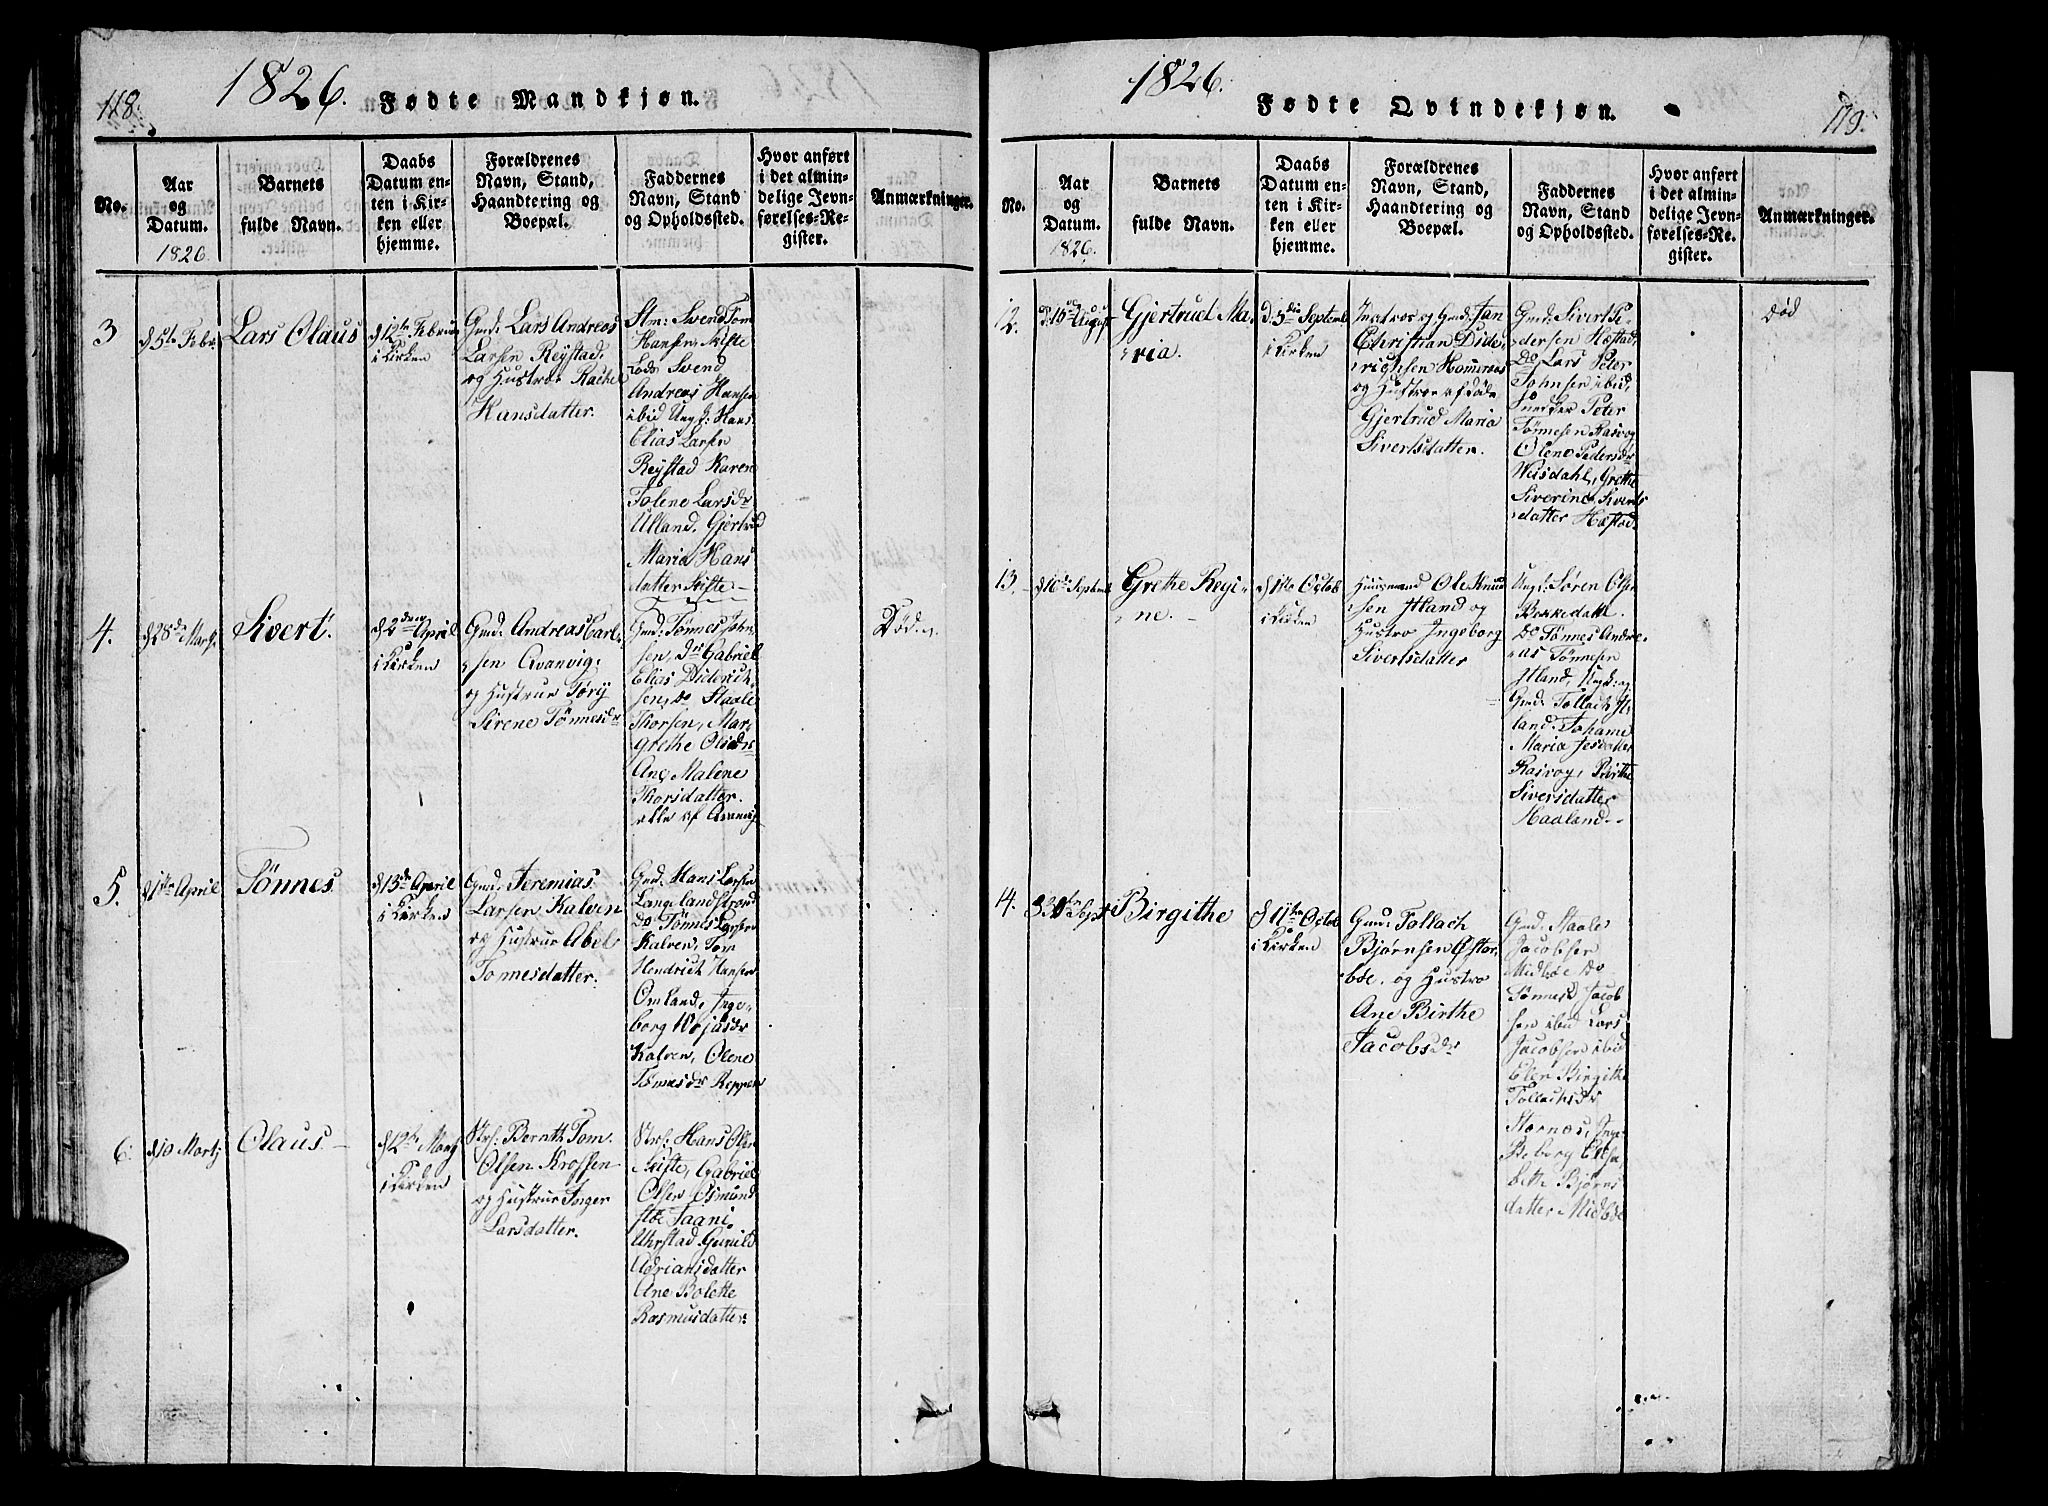 118.
1826. Fødte Mandkjøn.
No.
Aar
og
Datum.
1826.
Barnets
fulde Navn.
Daabs
Datum en-
ten i Kir-
ken eller
hjemme.
Forældrenes
Navn, Stand,
Haandtering og
Boepæl.
Faddernes
Navn, Stand
og Opholdssted.
Hvor anført
i det almin-
delige Jevn-
førelses-Re-
gister.
Anmærkninger.
3
d 5te Febr:
Lars Olaus
d 12te Februar
i Kirken
Gmd: Lars Andreas
Larsen Reystad,
og Hustroe Rachel
Hansdatter.
Svend Tom
Hansen Skifte
Lods Svend
Andreas Hansen
ibid Ungk: Hans
Elias Larsen
Reystad Karen
Tolene Larsdr
Ulland, Gjertrud
Maria Hans
datter Skifte
4.
d 28de Marts
Sivert.
d 2den April
i Kirken
Gmd: Andreas Carl-
sen Qvanvig:
og Hustrue Tory
Sirene Tønnesdr
Gmd: Tønnes John-
sen, do Gabriel
Elias Diderich
sen, do Staale
Thorsen, Mar-
grethe Olsdr
Ane Malene
Thorsdatter.
alle af Qvanvig
Død.
5.
d 1ste April
Tønnes
d 13de April
i Kirken
Gmd: Jeremias
Larsen Kalven
og Hustrue Abel
Tonnesdatter.
Gmd: Hans Larsen
Langelandstrand
do Tønnes Larsen
Kalven, Tom
Hendrich Hansen
Omland, Inge-
borg
Kalven, Olene
Tønnesdr Reppen
6.
d 10 Marts
Olaus
d 12te
i Kirken
Strs: Bernth Tom
Olsen Krossen
og Hustrue Inger
Larsdatter.
Strs: Hans Olsen
Skifte, Gabriel
Olsen Osmund
stoe
Uhrstad Gunild
Adriansdatter
Ane Bolette
Rasmusdatter
1826.
Fødte Qvindekjøn.
119.
No.
Aar
og
Datum.
1826.
Barnets
fulde Navn.
Daabs
Datum en-
ten i Kir-
ken eller
hjemme.
Forældrenes
Navn, Stand,
Haandtering og
Boepæl.
Faddernes
Navn, Stand
og Opholdssted.
Hvor anført
i det almin-
delige Jevn-
førelses-Re-
gister.
Anmærkninger.
12.
August
Gjertrud Ma-
ria.
d. 5te Septemb
i Kirken
og Gmd: Jan
Christian Dide-
richsen Homeraas
og Hustroe
Gjertrud Maria
Sivertsdatter.
Gmd: Sivert Pe-
dersen Hæstad,
Do Lars Peter
Johnsen ibid,
Peter
Tønnesen Rasvog
Olene Pedersdr
Weisdahl, Grethe
Siverine Siverts
datter Hæstad
død
13.
d 16de Septemb
Grethe Regi-
ne.
d 1ste Octob
i Kirken
Huusmand Ole Knud
sen Itland og
Hustro Ingeborg
Sivertsdatter
Ungk: Søren Olsen
Bekkedahl.
Do Tønnes Andre-
as Tønnesen
Itland, Ungk: og
Gmd: Tollach It-
land. Johanne
Maria Jesdatter
Rasvog, Birthe
Siversdatter
Haaland
14.
Sept
Birgithe
Octob
i Kirken
Gmd: Tollach
Bjørnsen Østre-
bøe, og Hustro
Ane Birthe
Jacobsdr
Gmd: Staale
Jacobsen
Midbøe Do
Tønnes Jacob
sen ibid Lars
Jacobsen ibid
Elen Birgithe
Tollachsdr
Stornæs, Inge-
borg Elisa-
beth Bjørns
datter Midbøe